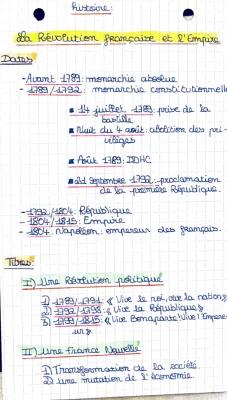 histoire:
La Révolution française et l'Empire
Dates
- Avant 1789: monarchie absolue
- 1789/1792: monarchie constitutionnelle
▪ 14 juillet 1789: prise de la
bastille
▪ Nuit du 4 août: abolition des pri-
vilèges
▪ Août 1789: DDHC
▪ 21 septembre 1792: proclamation
de la première République.
- 1792/1804: République
- 1804/1815: Empire
- 1804: Napoléon: empereur des français.
Titres:
I) Une Révolution politique
1) 1789/1791: « Vive le roi, vive la nation»
2) 1792/1798: « Vive la République»
3) 1799/1815: « Vive Bonaparte! Vive l'Empere-
ur»
II) Une France Nouvelle
1) Transformation de la société.
2) une mutation de l'économie.